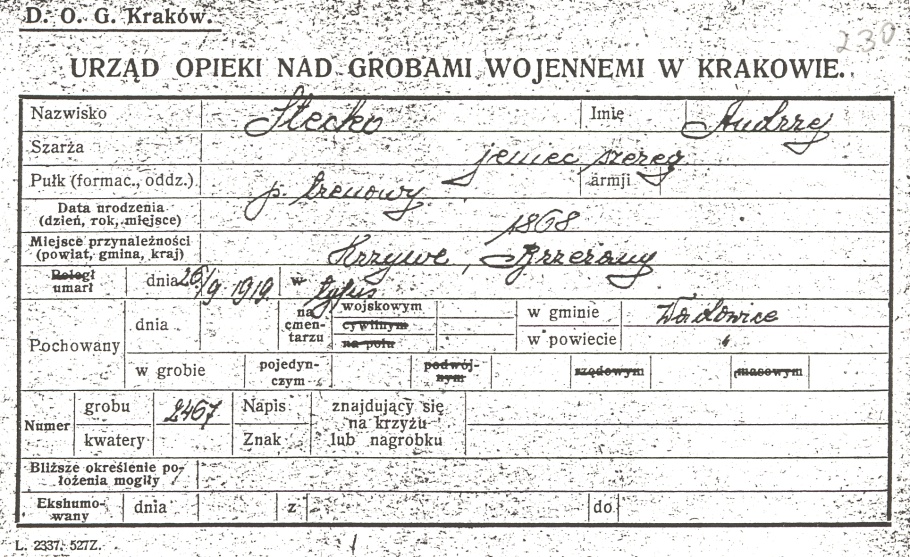 D. O. G. Kraków.
230
URZĄD OPIEKI NAD GROBAMI WOJENNEMI W KRAKOWIE.
Nazwisko Stecko Imię Andrzej
Szarża jeniec szereg
Pułk (formac., oddz.) p. trenowy armji
Data urodzenia
(dzień, rok, miejsce) 1868
Miejsce przynależności
(powiat, gmina, kraj) Krzywe, Brzeżany
Poległ
umarł dnia 26/9 1919 w tyfus
Pochowany dnia na cmen-tarzu wojskowym cywilnym na polu w gminie Wadowice
w powiecie "
w grobie pojedyn-czym podwój-nym rzędowym masowym
Numer grobu 2467 Napis znajdujący się
na krzyżu
kwatery Znak lub nagrobku
Bliższe określenie po-
łożenia mogiły
Ekshumo-
wany dnia z do
L. 2337. 527Z.